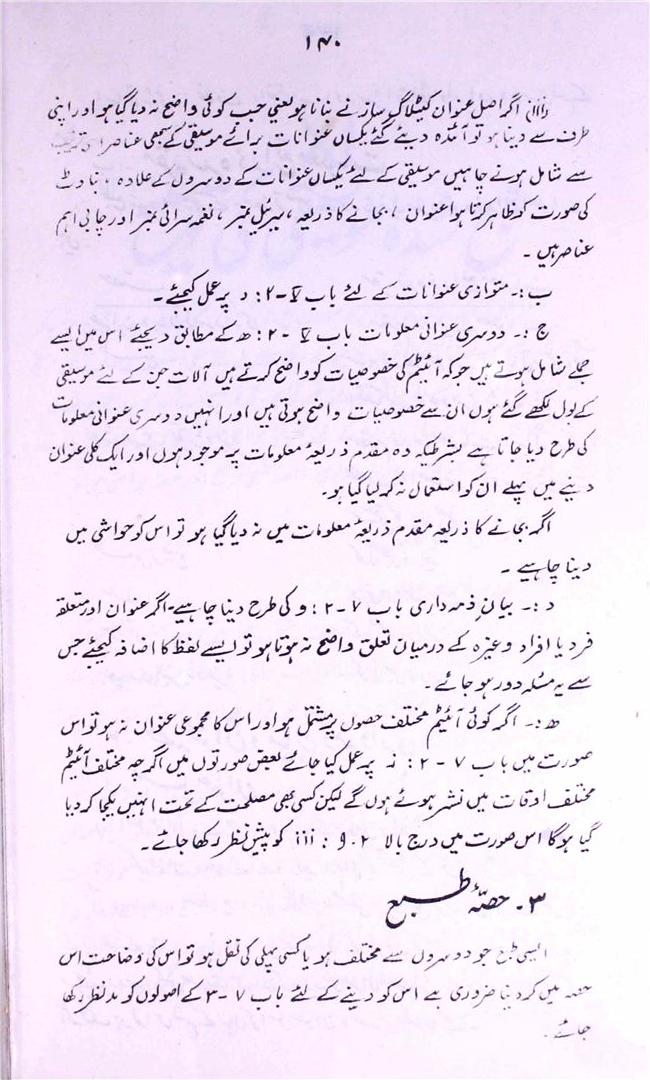 ۱۴۰
(iii) اگر اصل عنوان کیٹلاگ ساز نے بنانا ہو یعنی جب کوئی واضح نہ دیا گیا ہو اور اپنی
طرف سے دینا ہو تو آئندہ دیئے گئے یکساں عنوانات برائے موسیقی کے سبھی عناصر اسی ترتیب
سے شامل ہونے چاہیں موسیقی کے لئے یکساں عنوانات کے دوسروں کے علاوہ، بناوٹ
کی صورت کو ظاہر کرتا ہوا عنوان، بجانے کا ذریعہ، سیریل نمبر، نغمہ سرائی نمبر اور چابی اہم
عناصر ہیں۔
ب:۔ متوازی عنوانات کے لئے باب ۷-۲: د پر عمل کیجئے۔
ج:۔ دوسری عنوانی معلومات باب ۷-۲: ھ کے مطابق دیجئے اس میں ایسے
جملے شامل ہوتے ہیں جو کہ آئیٹم کی خصوصیات کو واضح کرتے ہیں آلات جن کے لئے موسیقی
کے بول لکھے گئے ہوں ان سے خصوصیات واضح ہوتی ہیں اور انہیں دوسری عنوانی معلومات
کی طرح دیا جاتا ہے بشرطیکہ وہ مقدم ذریعہ معلومات پر موجود ہوں اور ایک کلی عنوان
دینے میں پہلے ان کو استعمال نہ کر لیا گیا ہو۔
اگر بجانے کا ذریعہ مقدم ذریعۂ معلومات میں نہ دیا گیا ہو تو اس کو حواشی میں
دینا چاہیے۔
د:۔ بیان ذمہ داری باب ۷-۲: و کی طرح دینا چاہیے۔ اگر عنوان اور متعلقہ
فرد یا افراد وغیرہ کے درمیان تعلق واضح نہ ہوتا ہو تو ایسے لفظ کا اضافہ کیجئے جس
سے یہ مسئلہ دور ہو جائے۔
ھ:۔ اگر کوئی آئیٹم مختلف حصوں پر مشتمل ہو اور اس کا مجموعی عنوان نہ ہو تو اس
صورت میں باب ۷-۲: ز پر عمل کیا جائے بعض صورتوں میں اگرچہ مختلف آئیٹم
مختلف اوقات میں نشر ہوئے ہوں گے لیکن کسی بھی مصلحت کے تحت انہیں یکجا کر دیا
گیا ہو گا اس صورت میں درج بالا ۹.۲: iii کو پیش نظر رکھا جائے۔
۳۔ حصّۂ طبع
ایسی طبع جو دوسروں سے مختلف ہو یا کسی پہلی کی نقل ہو تو اس کی وضاحت اس
حصہ میں کر دینا ضروری ہے اس کو دینے کے لئے باب ۷-۳ کے اصولوں کو مدنظر رکھا
جائے۔